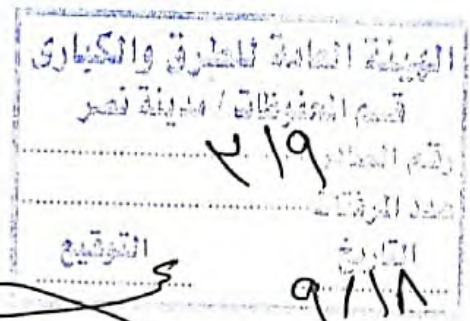 الهيئة العامة للطرق والكبارى
قسم المحفوظات / مدينة نصر
رقم الصادر ٢١٩
عدد المرفقات
التاريخ التوقيع
٩/١٨